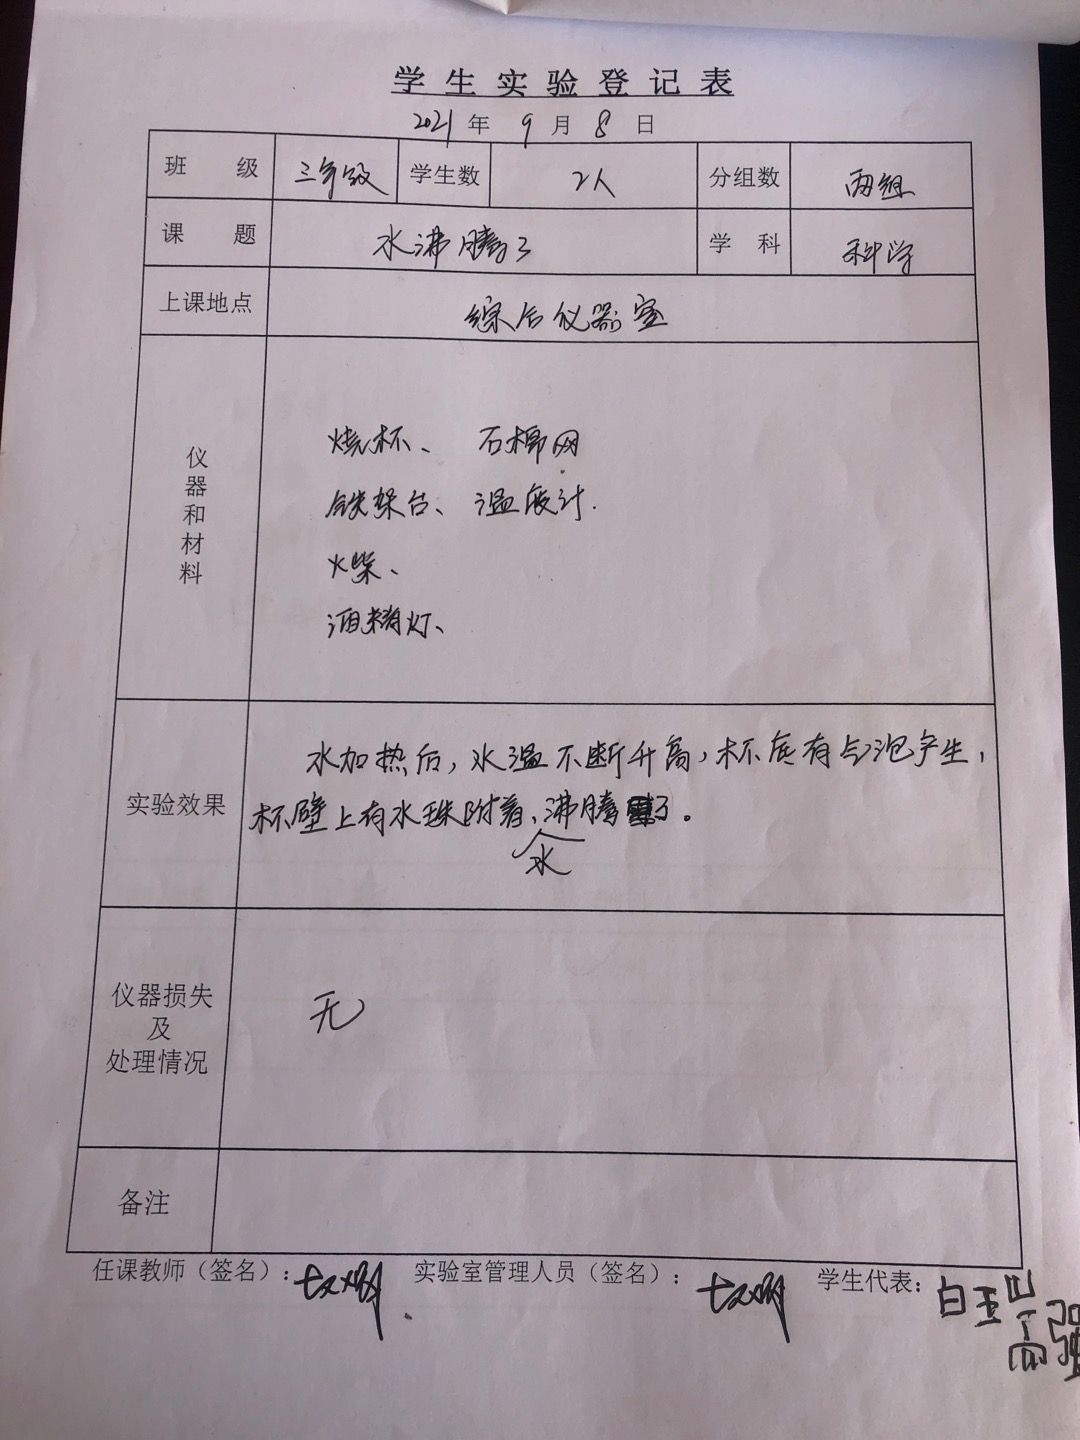 学生实验登记表
2021年9月8日
班 级 三年级 学生数 2人 分组数 两组
课 题 水沸腾了 学 科 科学
上课地点 综合仪器室
仪器和材料
烧杯、 石棉网
铁架台、 温度计.
火柴、
酒精灯、
实验效果
水加热后,水温不断升高,杯底有气泡产生,
杯壁上有水珠附着、沸腾了。
水
仪器损失
及
处理情况
无
备注
任课教师(签名): 实验室管理人员(签名): 学生代表:
高强